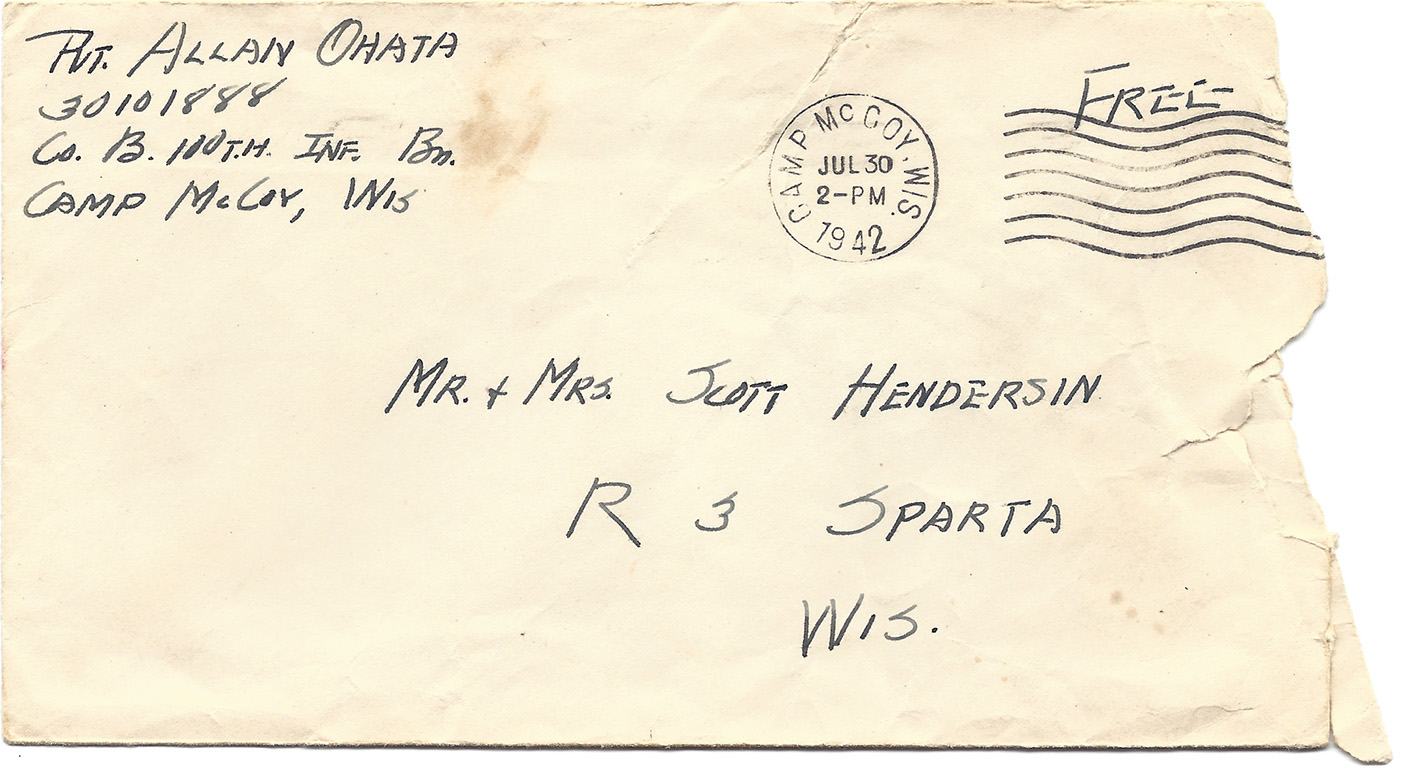 Pvt. Allan Ohata
30101888
Co. B. 100th. Inf. Bn.
Camp McCoy, Wis
Free
CAMP McCOY, WIS.
JUL 30
2-PM
1942
Mr. + Mrs. Scott Hendersin
R 3 Sparta
Wis.